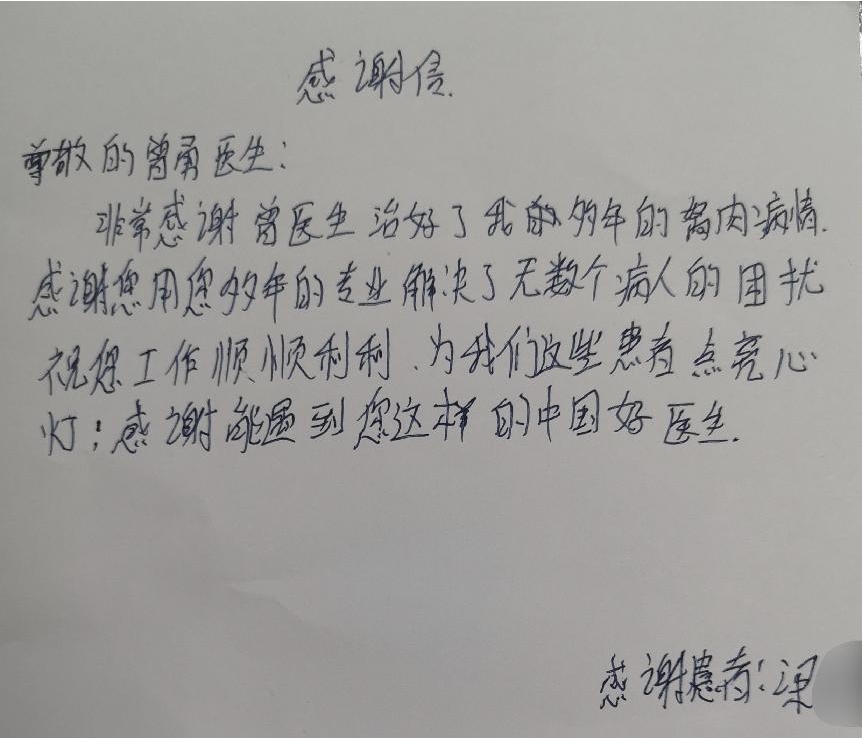 感谢信.
尊敬的曾勇医生:
非常感谢曾医生治好了我的多年的息肉病情.
感谢您用您多年的专业解决了无数个病人的困扰
祝您工作顺顺利利、为我们这些患者点亮心
灯;感谢能遇到您这样的中国好医生.
感谢患者:梁